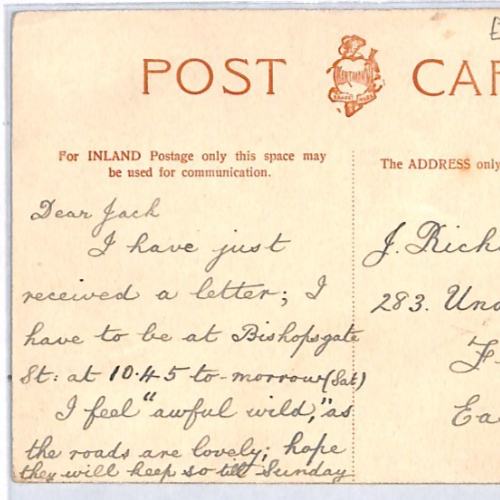 POST CAR
HARTMANN
TRADE MARK
For INLAND Postage only this space may
be used for communication.
The ADDRESS only
Dear Jack
I have just
received a letter; I
have to be at Bishopsgate
St: at 10.45 to-morrow (Sat)
I feel "awful wild," as
the roads are lovely; hope
they will keep so till Sunday
J. Rich
283. Und
F
Ea